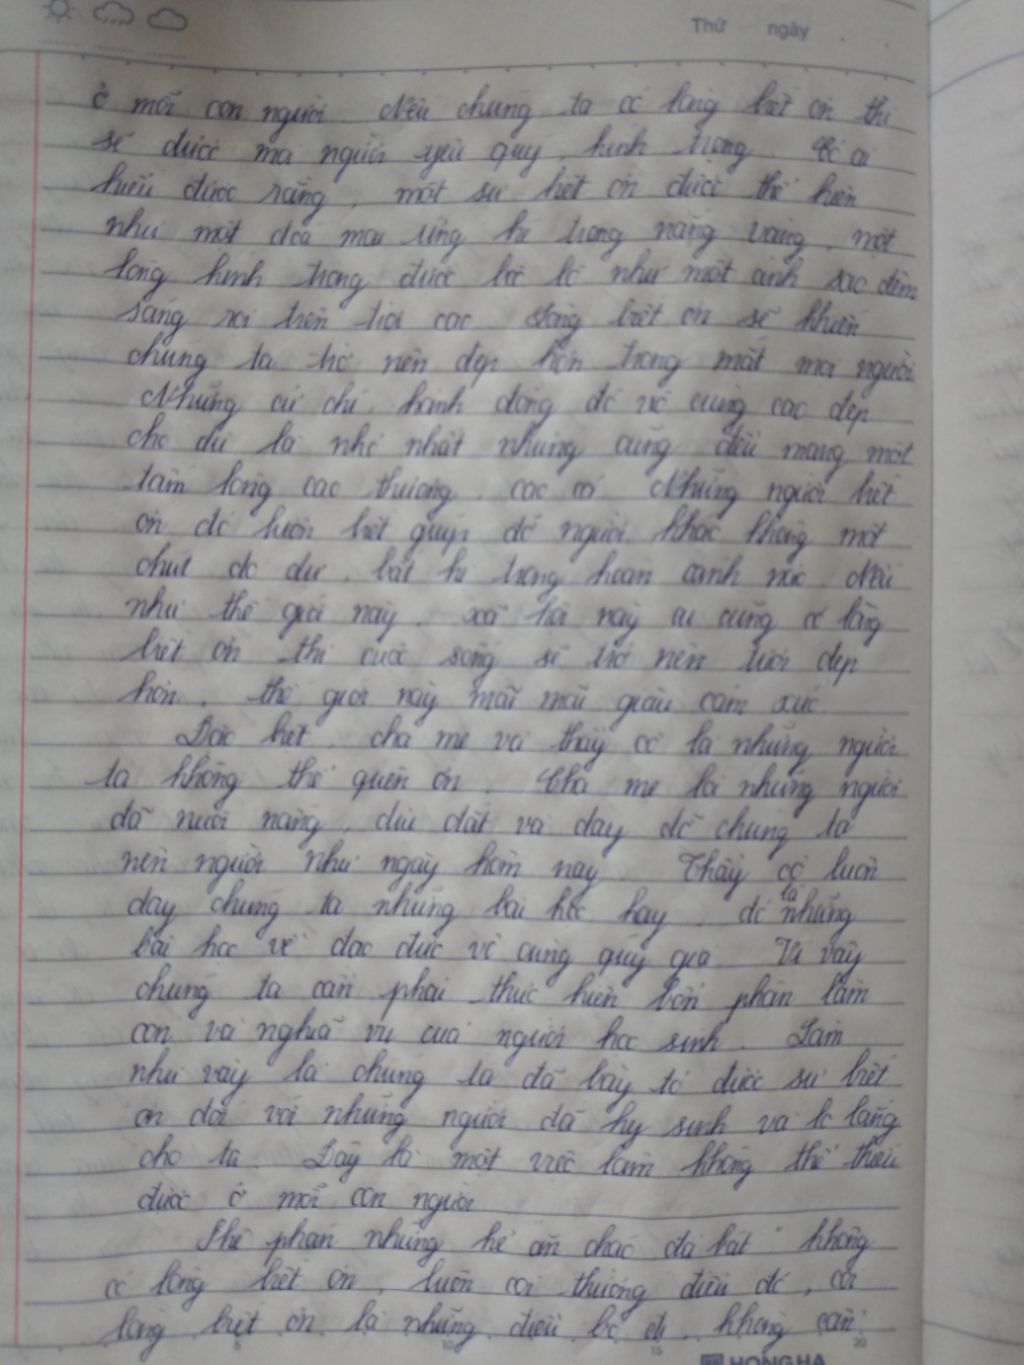 Thứ ngày
ở mỗi con người. Nếu chúng ta có lòng biết ơn thì
sẽ được mọi người yêu quý, kính trọng. Có ai
hiểu được rằng, một sự biết ơn được thể hiện
như một đoá mai ửng hé trong nắng vàng, một
lòng kính trọng được bộc lộ như một ánh sao đêm
sáng rọi trên trời cao. Lòng biết ơn sẽ khiến
chúng ta trở nên đẹp hơn trong mắt mọi người
Những cử chỉ, hành động đó vô cùng cao đẹp
cho dù là nhỏ nhặt nhưng cũng đều mang một
tấm lòng cao thượng, cao cả. Những người biết
ơn đó luôn biết giúp đỡ người khác không một
chút do dự, bất kì trong hoàn cảnh nào. Nếu
như thế giới này, xã hội này ai cũng có lòng
biết ơn thì cuộc sống sẽ trở nên tươi đẹp
hơn, thế giới này mãi mãi giàu cảm xúc.
Đặc biệt, cha mẹ và thầy cô là những người
ta không thể quên ơn. Cha mẹ là những người
đã nuôi nấng, dìu dắt và dạy dỗ chúng ta
nên người như ngày hôm nay. Thầy cô luôn
dạy chúng ta những bài học hay, đó là những
bài học về đạo đức vô cùng quý giá. Vì vậy
chúng ta cần phải thực hiện bổn phận làm
con và nghĩa vụ của người học sinh. Làm
như vậy là chúng ta đã bày tỏ được sự biết
ơn đối với những người đã hy sinh và lo lắng
cho ta. Đây là một việc làm không thể thiếu
được ở mỗi con người
Phê phán những kẻ ăn cháo đá bát không
có lòng biết ơn, luôn coi thường điều đó, coi
lòng biết ơn là những điều bỏ đi, không cần
5 10 15 20
HONG HA